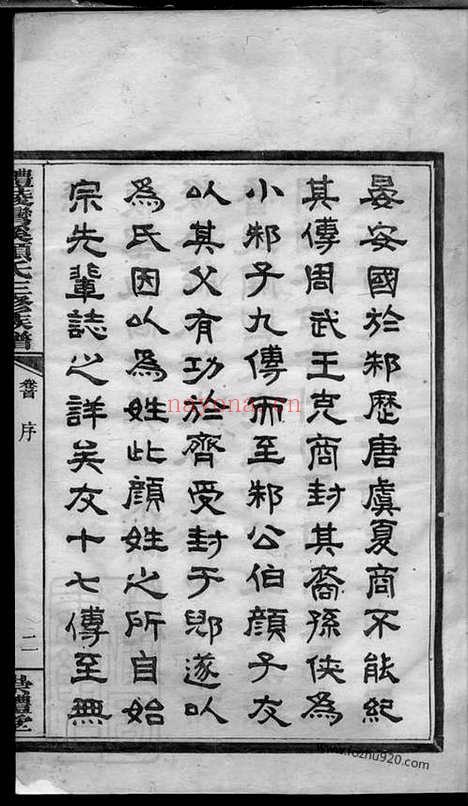 晏安國於邾歷唐虞夏商不能紀
其傳周武王克商封其裔孫俠為
小邾子九傳而至邾公伯顏子友
以其父有功於齊受封于郳遂以
為氏因以為姓此顏姓之所自始
宗先輩誌之詳矣友十七傳至無
醴陵灣溪顏氏三修族譜
卷首 序
二
nayona.cn
www.fozhu920.com